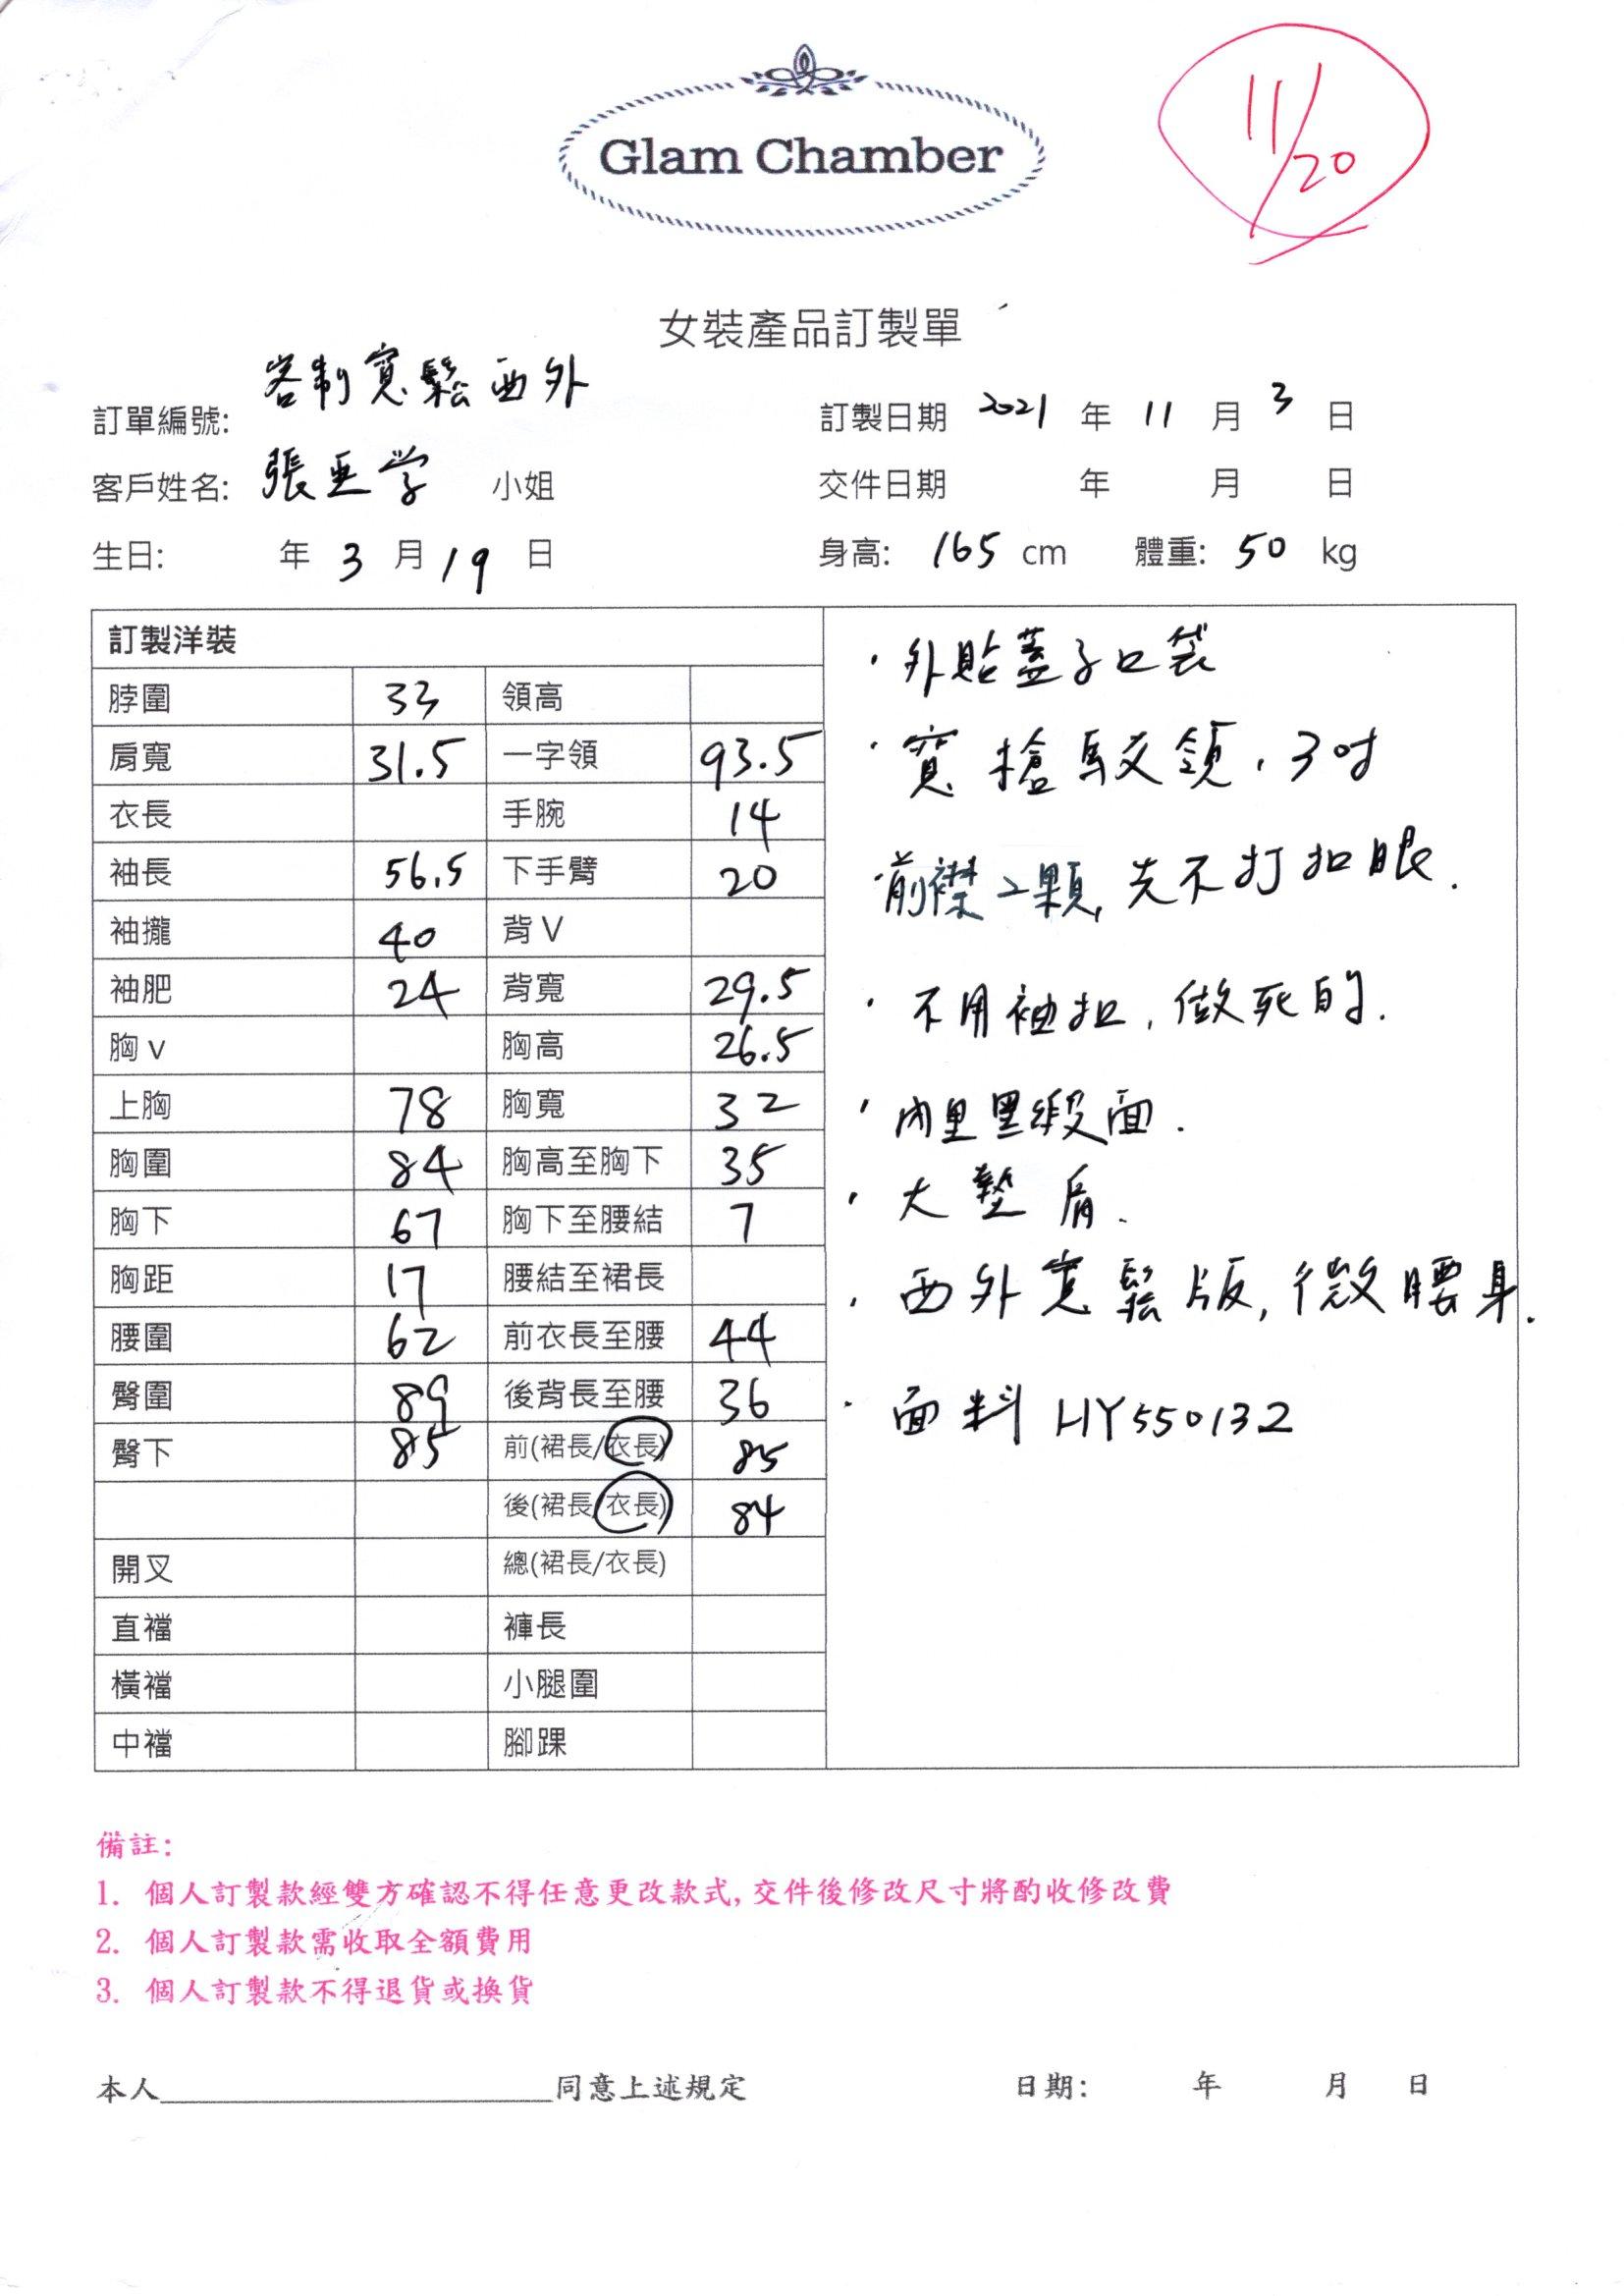 Glam Chamber
11/20
女裝產品訂製單
訂單編號: 客制寬鬆西外
訂製日期 2021 年 11 月 3 日
客戶姓名: 張 小姐
交件日期 年 月 日
生日: 年 3 月 19 日
身高: 165 cm 體重: 50 kg
訂製洋裝
脖圍 33 領高
肩寬 31.5 一字領 93.5
衣長 手腕 14
袖長 56.5 下手臂 20
袖攏 40 背V
袖肥 24 背寬 29.5
胸v 胸高 26.5
上胸 78 胸寬 32
胸圍 84 胸高至胸下 35
胸下 67 胸下至腰結 7
胸距 17 腰結至裙長
腰圍 62 前衣長至腰 44
臀圍 89 後背長至腰 36
臀下 85 前(裙長/衣長) 85
後(裙長/衣長) 84
開叉 總(裙長/衣長)
直襠 褲長
橫襠 小腿圍
中襠 腳踝
·外貼蓋子口袋
·寬槍駁領,3吋
·前襟2顆,先不打扣眼.
·不用袖扣,做死的.
·內里黑緞面.
·大墊肩.
·西外寬鬆版,微腰身.
·面料 HY550132
備註:
1. 個人訂製款經雙方確認不得任意更改款式,交件後修改尺寸將酌收修改費
2. 個人訂製款需收取全額費用
3. 個人訂製款不得退貨或換貨
本人____________________同意上述規定
日期: 年 月 日